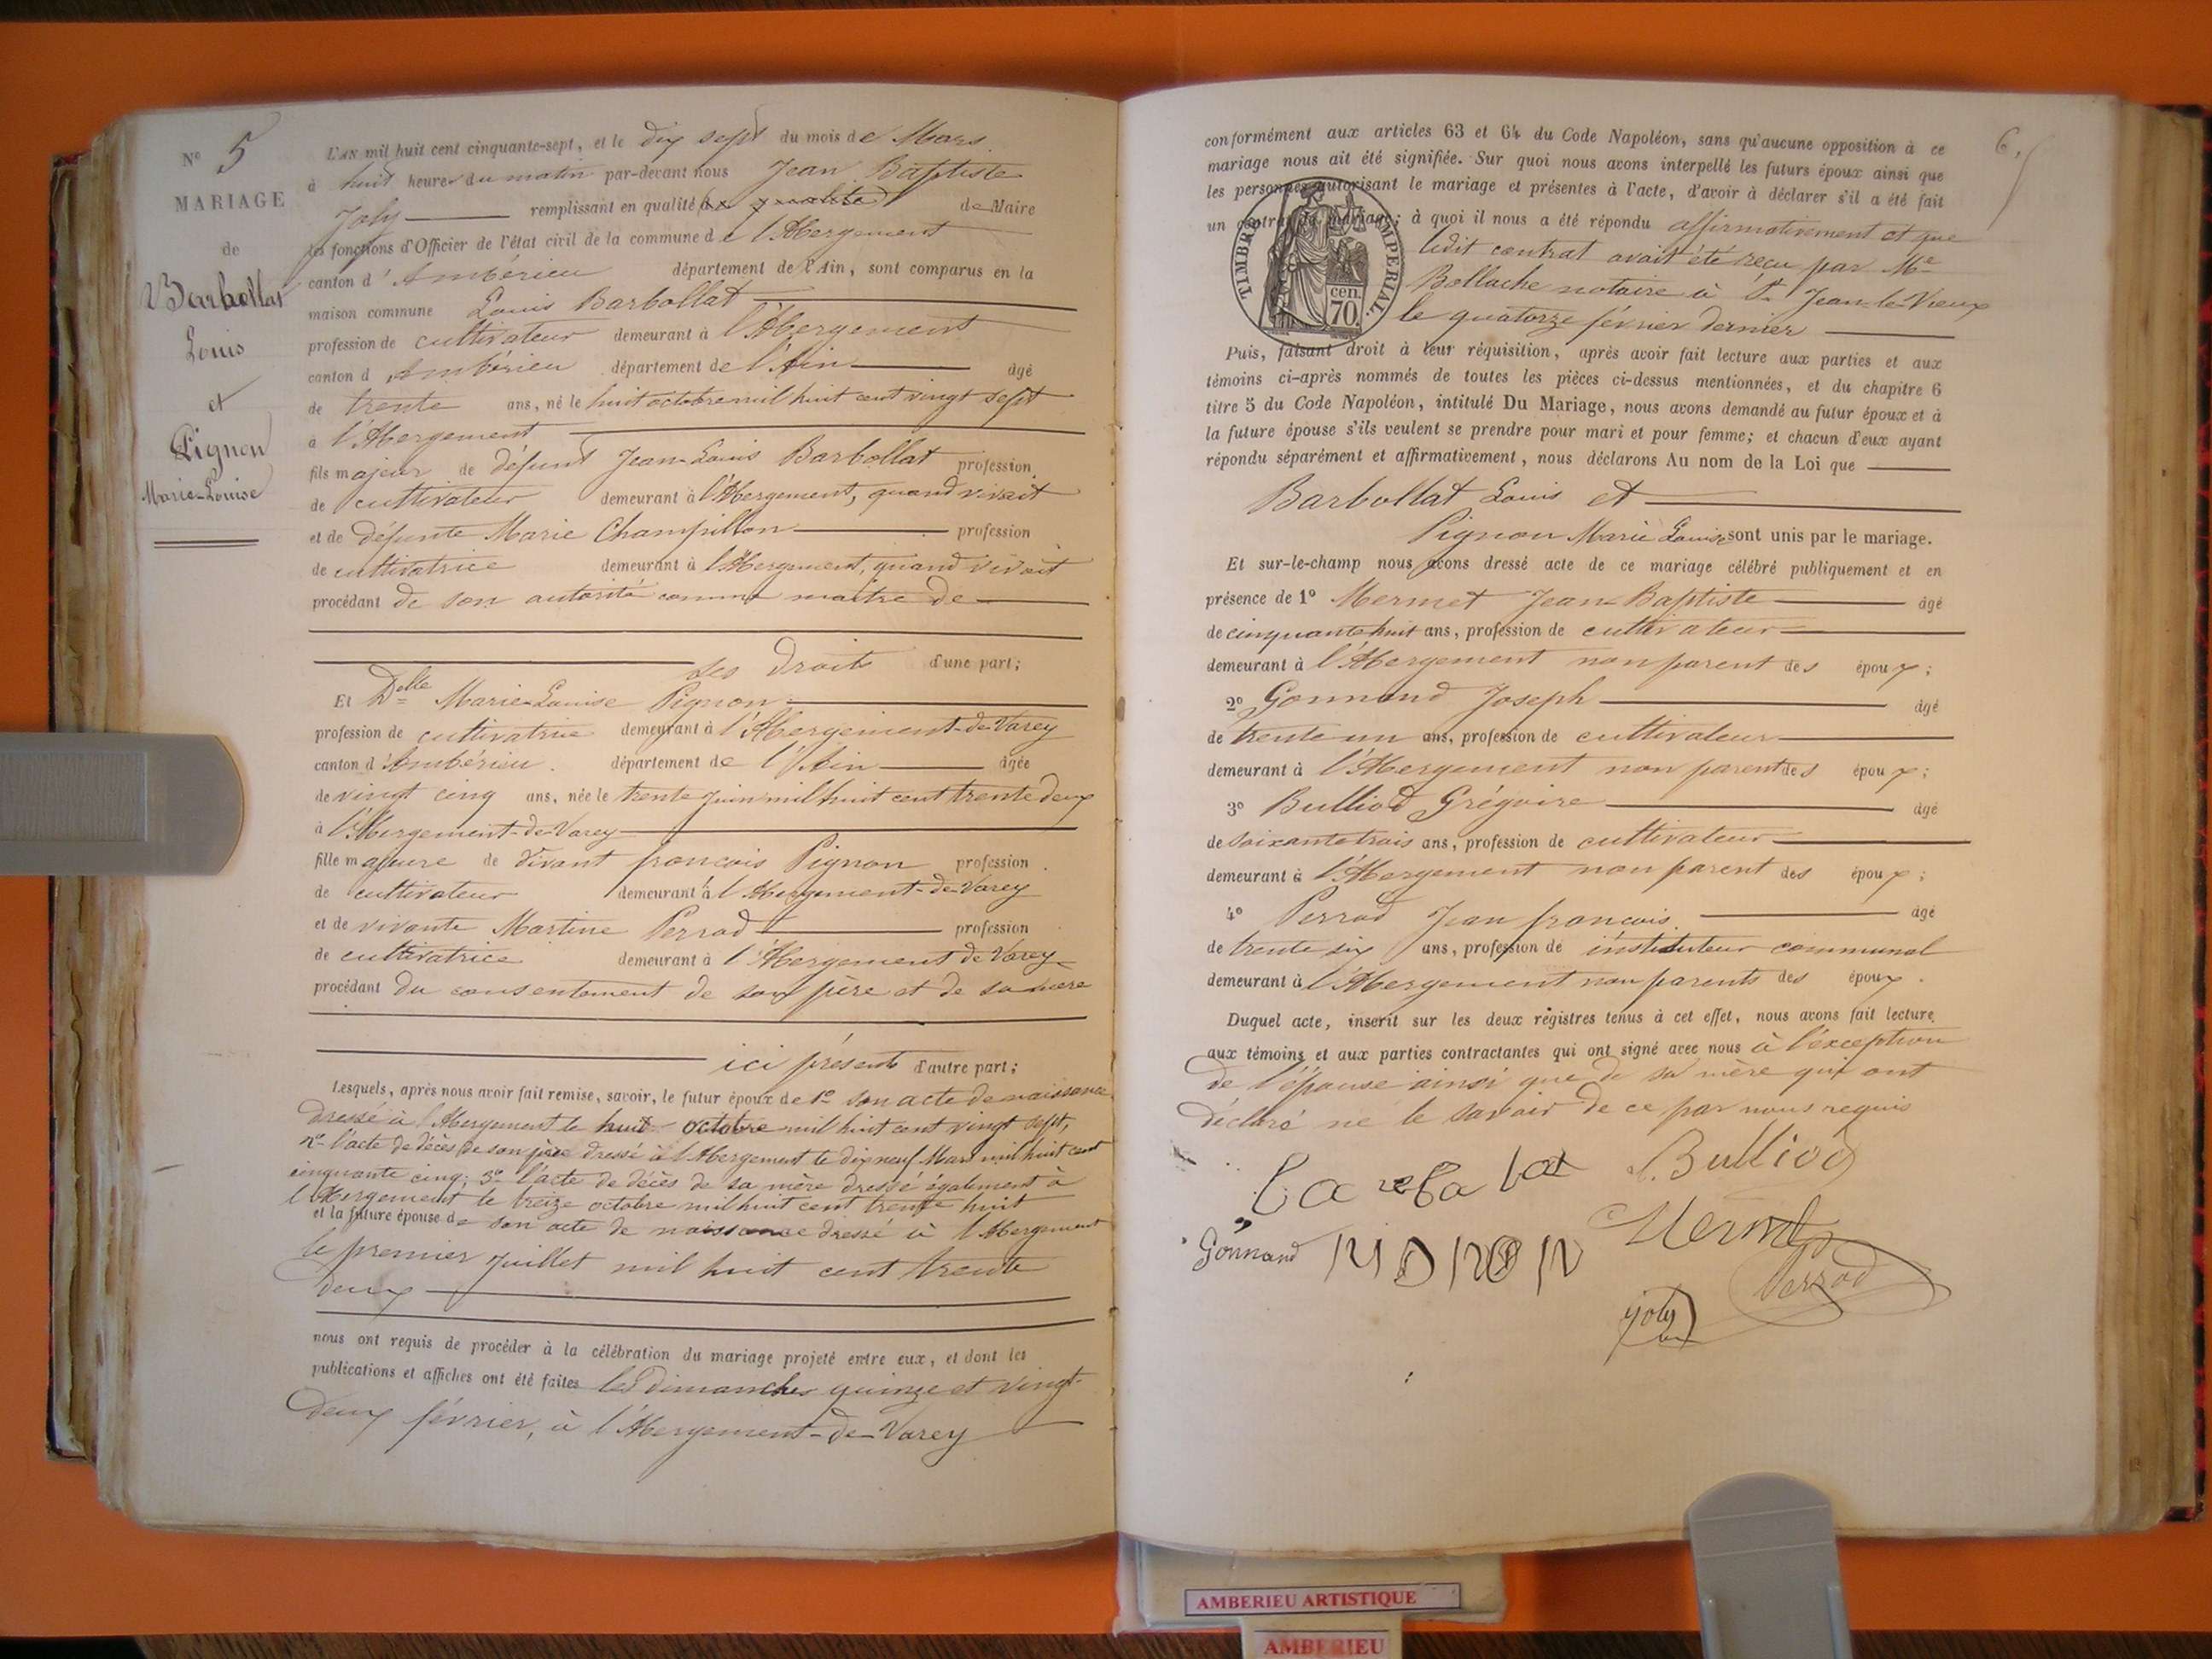 N° 5
MARIAGE
de
Barbollat
Louis
et
Pignon
Marie-Louise
L'AN mil huit cent cinquante-sept, et le dix sept du mois de Mars
à huit heures du matin par-devant nous Jean Baptiste
Joly remplissant en qualité de Maire
les fonctions d'Officier de l'état civil de la commune de l'Abergement
canton d'Ambérieu département de l'Ain, sont comparus en la
maison commune Louis Barbollat
profession de cultivateur demeurant à l'Abergement
canton d'Ambérieu département de l'Ain âgé
de trente ans, né le huit octobre mil huit cent vingt sept
à l'Abergement
fils majeur de défunt Jean-Louis Barbollat profession
de cultivateur demeurant à l'Abergement, quand vivait
et de défunte Marie Champillon profession
de cultivatrice demeurant à l'Abergement, quand vivait
procédant de son autorité comme maître de
ses droits d'une part;
Et Delle Marie-Louise Pignon
profession de cultivatrice demeurant à l'Abergement-de-Varey
canton d'Ambérieu département de l'Ain âgée
de vingt cinq ans, née le trente juin mil huit cent trente deux
à l'Abergement-de-Varey
fille majeure de vivant francois Pignon profession
de cultivateur demeurant à l'Abergement-de-Varey
et de vivante Martine Perrod profession
de cultivatrice demeurant à l'Abergement de Varey
procédant du consentement de son père et de sa mère
ici présents d'autre part;
Lesquels, après nous avoir fait remise, savoir, le futur époux de 1° son acte de naissance
dressé à l'Abergement le huit octobre mil huit cent vingt sept,
l'acte de décès de son père dressé à l'Abergement le dix neuf Mars mil huit cent
cinquante cinq; 3° l'acte de décès de sa mère dressé également à
l'Abergement le treize octobre mil huit cent trente huit
et la future épouse de son acte de naissance dressé à l'Abergement
le premier Juillet mil huit cent trente
deux
nous ont requis de procéder à la célébration du mariage projeté entre eux, et dont les
publications et affiches ont été faites les dimanches quinze et vingt-
deux février, à l'Abergement-de-Varey
6.
conformément aux articles 63 et 64 du Code Napoléon, sans qu'aucune opposition à ce
mariage nous ait été signifiée. Sur quoi nous avons interpellé les futurs époux ainsi que
les personnes autorisant le mariage et présentes à l'acte, d'avoir à déclarer s'il a été fait
un contrat de mariage; à quoi il nous a été répondu affirmativement et que
ledit contrat avait été reçu par Me
Bellache notaire à St Jean-le-Vieux
le quatorze février dernier
TIMBRE IMPERIAL
cen.
70.
Puis, faisant droit à leur réquisition, après avoir fait lecture aux parties et aux
témoins ci-après nommés de toutes les pièces ci-dessus mentionnées, et du chapitre 6
titre 5 du Code Napoléon, intitulé Du Mariage, nous avons demandé au futur époux et à
la future épouse s'ils veulent se prendre pour mari et pour femme; et chacun d'eux ayant
répondu séparément et affirmativement, nous déclarons Au nom de la Loi que
Barbollat Louis et
Pignon Marie Louise sont unis par le mariage.
Et sur-le-champ nous avons dressé acte de ce mariage célébré publiquement et en
présence de 1° Mermet Jean-Baptiste âgé
de cinquante huit ans, profession de cultivateur
demeurant à l'Abergement non parent des époux;
2° Gonnand Joseph âgé
de trente un ans, profession de cultivateur
demeurant à l'Abergement non parent des époux;
3° Bulliod Grégoire âgé
de soixante trois ans, profession de cultivateur
demeurant à l'Abergement non parent des époux;
4° Perrod Jean francois âgé
de trente six ans, profession de instituteur communal
demeurant à l'Abergement non parents des époux.
Duquel acte, inscrit sur les deux registres tenus à cet effet, nous avons fait lecture
aux témoins et aux parties contractantes qui ont signé avec nous à l'exception
de l'épouse ainsi que de sa mère qui ont
déclaré ne le savoir de ce par nous requis
Bulliod
Gonnand
Mermet
Perrod
joly
AMBERIEU ARTISTIQUE
AMBERIEU